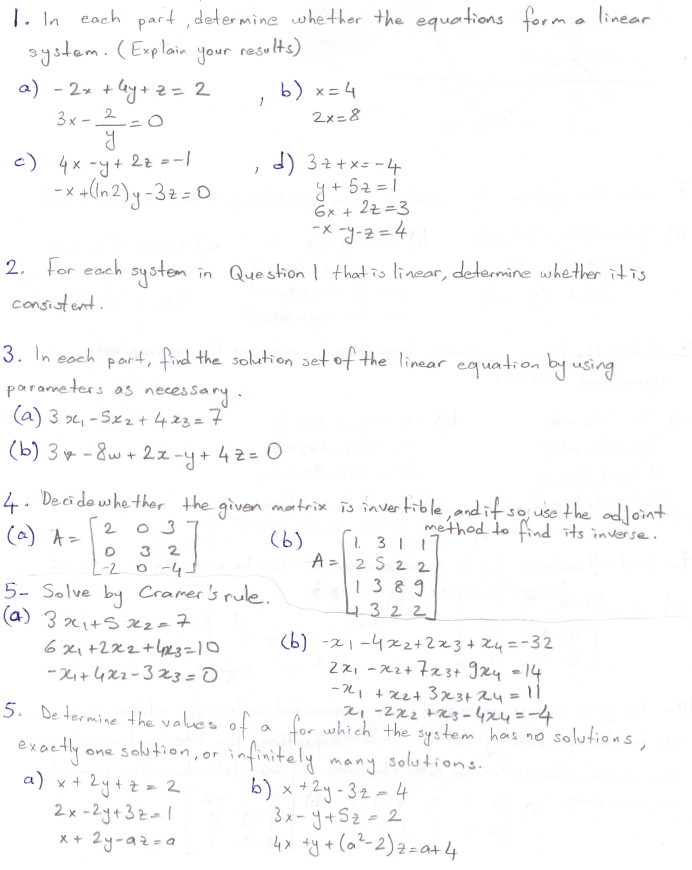 1. In each part, determine whether the equations form a linear
system. (Explain your results)
a) -2x + 4y + z = 2 , b) x = 4
3x - 2/y = 0 2x = 8
c) 4x - y + 2z = -1 , d) 3z + x = -4
-x + (ln 2)y - 3z = 0 y + 5z = 1
6x + 2z = 3
-x - y - z = 4
2. For each system in Question 1 that is linear, determine whether it is
consistent.
3. In each part, find the solution set of the linear equation by using
parameters as necessary.
(a) 3x₁ - 5x₂ + 4x₃ = 7
(b) 3v - 8w + 2x - y + 4z = 0
4. Decide whether the given matrix is invertible, and if so, use the adjoint
method to find its inverse.
(a) A = [2 0 3 (b) A = [1 3 1 1
0 3 2 2 5 2 2
-2 0 -4] 1 3 8 9
1 3 2 2]
5- Solve by Cramer's rule.
(a) 3x₁ + 5x₂ = 7
6x₁ + 2x₂ + 4x₃ = 10 (b) -x₁ - 4x₂ + 2x₃ + x₄ = -32
-x₁ + 4x₂ - 3x₃ = 0 2x₁ - x₂ + 7x₃ + 9x₄ = 14
-x₁ + x₂ + 3x₃ + x₄ = 11
x₁ - 2x₂ + x₃ - 4x₄ = -4
5. Determine the values of a for which the system has no solutions,
exactly one solution, or infinitely many solutions.
a) x + 2y + z = 2 b) x + 2y - 3z = 4
2x - 2y + 3z = 1 3x - y + 5z = 2
x + 2y - az = a 4x + y + (a² - 2)z = a + 4